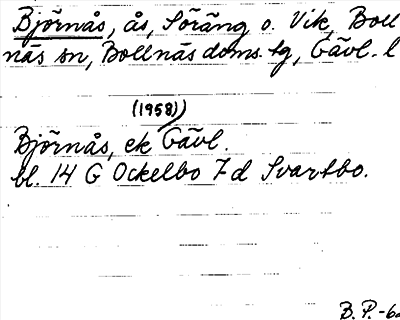 Björnås, ås, Söräng o. Vik, Boll
näs sn, Bollnäs doms. tg, Gävl. l
(1958)
Björnås, ek Gävl.
bl. 14 G Ockelbo 7 d Svartbo.
B. P. -62